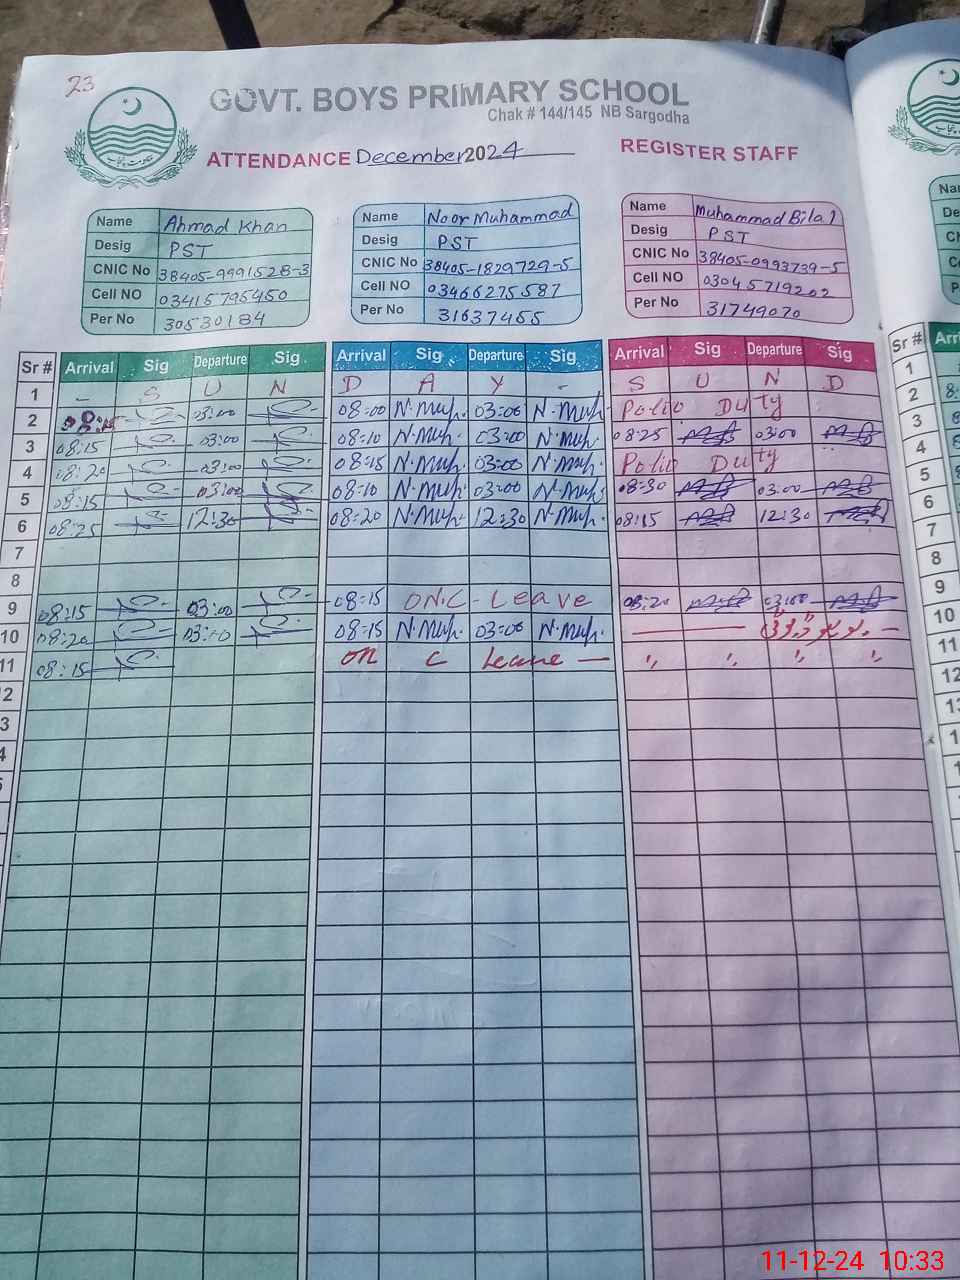 23
GOVT. BOYS PRIMARY SCHOOL
Chak # 144/145 NB Sargodha
ATTENDANCE December 2024 REGISTER STAFF
Name Ahmad Khan Name Noor Muhammad Name Muhammad Bilal
Desig PST Desig PST Desig PST
CNIC No 38405-9991528-3 CNIC No 38405-1829729-5 CNIC No 38405-0993739-5
Cell NO 03415795450 Cell NO 03466275587 Cell NO 03045719202
Per No 30530184 Per No 31637455 Per No 31749070
Sr # Arrival Sig Departure Sig Arrival Sig Departure Sig Arrival Sig Departure Sig Sr #
1 - S U N D A Y - S U N D 1
2 08:15 03:00 08:00 N.Muh. 03:00 N.Muh. Polio Duty 2
3 08:15 03:00 08:10 N.Muh. 03:00 N.Muh. 08:25 03:00 3
4 08:20 03:00 08:15 N.Muh. 03:00 N.Muh. Polio Duty 4
5 08:15 03:00 08:10 N.Muh. 03:00 N.Muh. 08:30 03:00 5
6 08:25 12:30 08:20 N.Muh. 12:30 N.Muh. 08:15 12:30 6
7 7
8 8
9 08:15 03:00 08:15 ON.C-Leave 08:20 03:00 9
10 08:20 03:00 08:15 N.Muh. 03:00 N.Muh. 10
11 08:15 on C Leave — " " " " 11
2 12
3
4
11-12-24 10:33